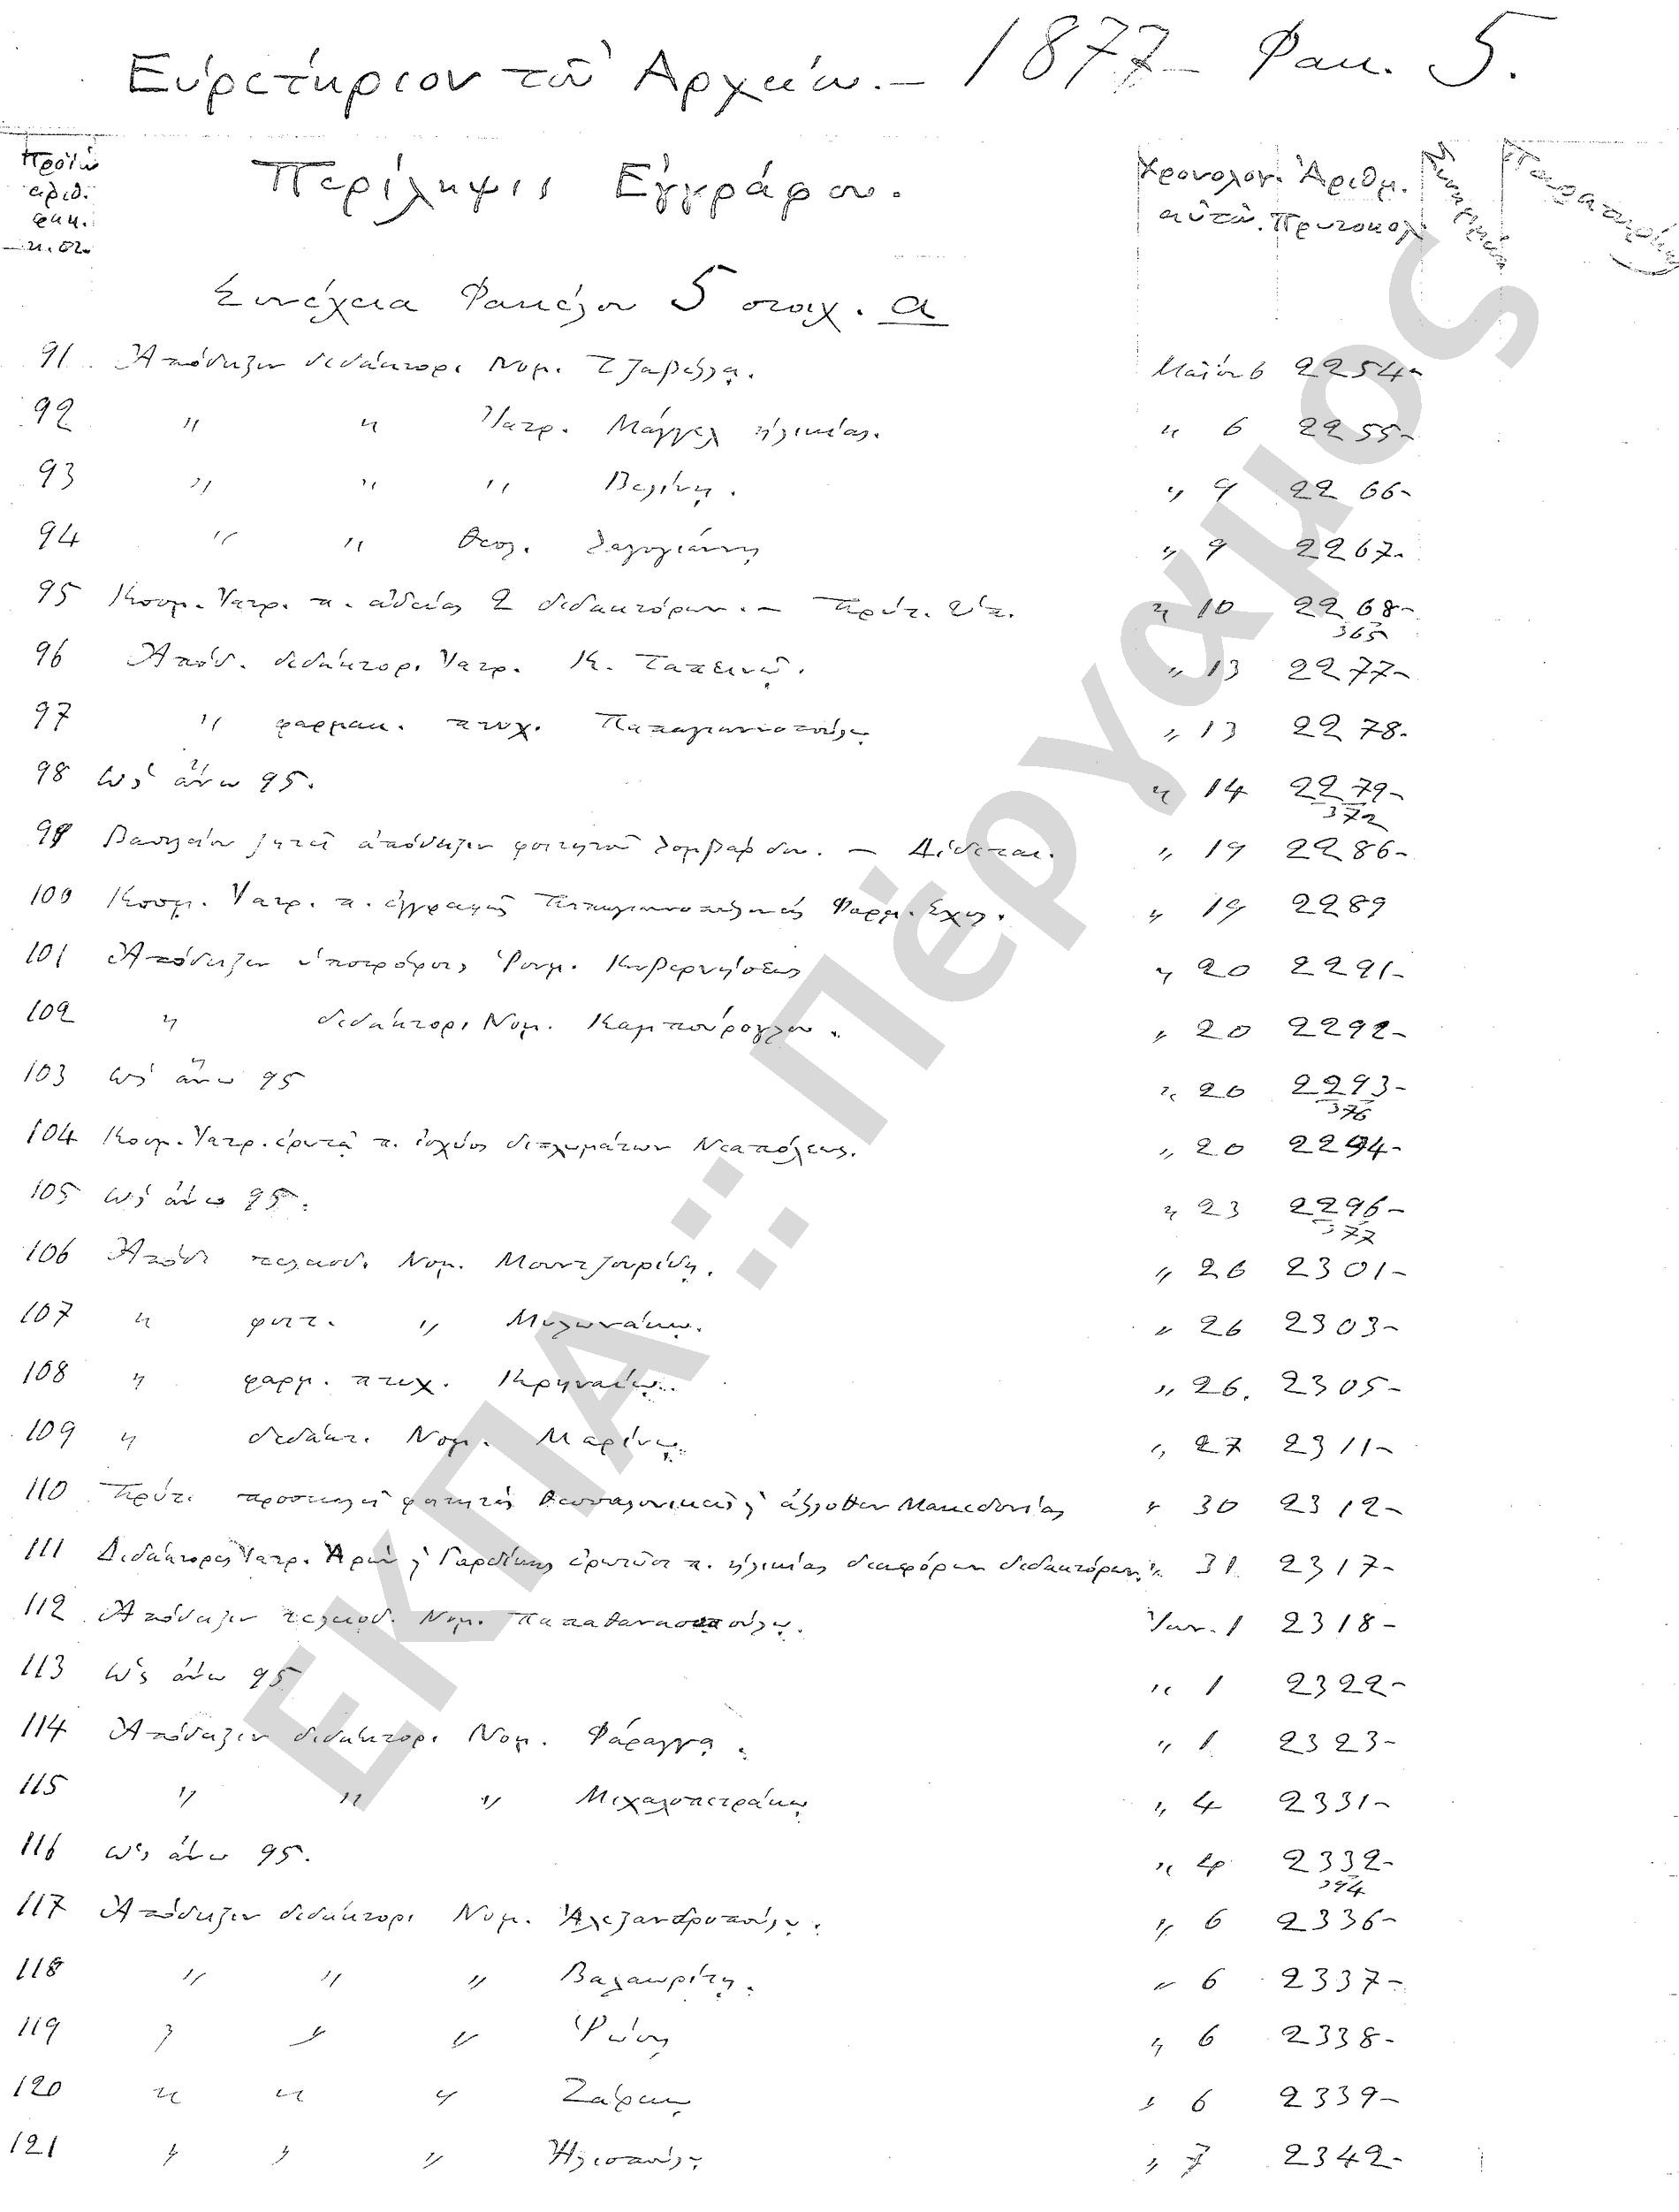 Εὑρετήριον τοῦ Ἀρχείου. — 1877 — Φακ. 5.
Πρωτ. ἀριθ. φακ. κ. στ.
Περίληψις Ἐγγράφου.
Χρονολογ. αὐτοῦ.
Ἀριθμ. Πρωτοκολ.
Συνέχεια Φακέλου 5 στοιχ. α
91 Ἀπόδειξιν διδάκτορι Νομ. Τζαβέλλᾳ. Μαΐου 6 2254-
92 " " Ἰατρ. Μάγγελ ἡλικίας. " 6 2255-
93 " " " Βελίνῃ. " 9 2266-
94 " " Θεολ. Λαγογιάννῃ " 9 2267-
95 Κοσμ. Ἰατρ. π. ἀδείας 2 διδακτόρων. — Πρύτ. " 10 2268- 365
96 Ἀπόδ. διδάκτορι Ἰατρ. Κ. Ταπεινῷ. " 13 2277-
97 " φαρμακ. πτυχ. Παπαγιαννοπούλῳ " 13 2278-
98 Ὡς ἄνω 95. " 14 2279- 372
99 Βασιλείου ζητεῖ ἀπόδειξιν φοιτητοῦ Λομβάρδου. — Δίδεται. " 19 2286-
100 Κοσμ. Ἰατρ. π. ἐγγραφῆς Παπαγιαννοπούλου εἰς Φαρμ. Σχολ. " 19 2289
101 Ἀπόδειξιν ὑποτρόφοις Ῥουμ. Κυβερνήσεως " 20 2291-
102 " διδάκτορι Νομ. Καμπούρογλου. " 20 2292-
103 Ὡς ἄνω 95 " 20 2293- 376
104 Κοσμ. Ἰατρ. ἐρωτᾷ π. ἰσχύος διπλωμάτων Νεαπόλεως. " 20 2294-
105 Ὡς ἄνω 95. " 23 2296- 377
106 Ἀπόδ. τελειοδ. Νομ. Μουντζουρίδῃ. " 26 2301-
107 " φοιτ. " Μυλωνάκῳ. " 26 2303-
108 " φαρμ. πτυχ. Κρηναίῳ. " 26. 2305-
109 " διδάκτ. Νομ. Μαρίνῳ. " 27 2311-
110 Πρύτ. προσκαλεῖ φοιτητὰς Θεσσαλονικεῖς ἢ ἄλλοθεν Μακεδονίας " 30 2312-
111 Διδάκτορες Ἰατρ. Ἀρ. Γαρδίκης ἐρωτῶσι π. ἡλικίας διαφόρων διδακτόρων " 31 2317-
112 Ἀπόδειξιν τελειοδ. Νομ. Παπαθανασοπούλῳ. Ἰουν. 1 2318-
113 Ὡς ἄνω 95 " 1 2322-
114 Ἀπόδειξιν διδάκτορι Νομ. Φάραγγᾳ. " 1 2323-
115 " " " Μιχαλοπετράκῳ " 4 2331-
116 Ὡς ἄνω 95. " 4 2332- 394
117 Ἀπόδειξιν διδάκτορι Νομ. Ἀλεξανδροπούλῳ. " 6 2336-
118 " " " Βαλαωρίτῃ. " 6 2337-
119 " " " Ῥώσῃ " 6 2338-
120 " " " Ζάρκῳ " 6 2339-
121 " " " Ἡλιοπούλῳ " 7 2342-
ΕΚΠΑ :: Πέργαμος